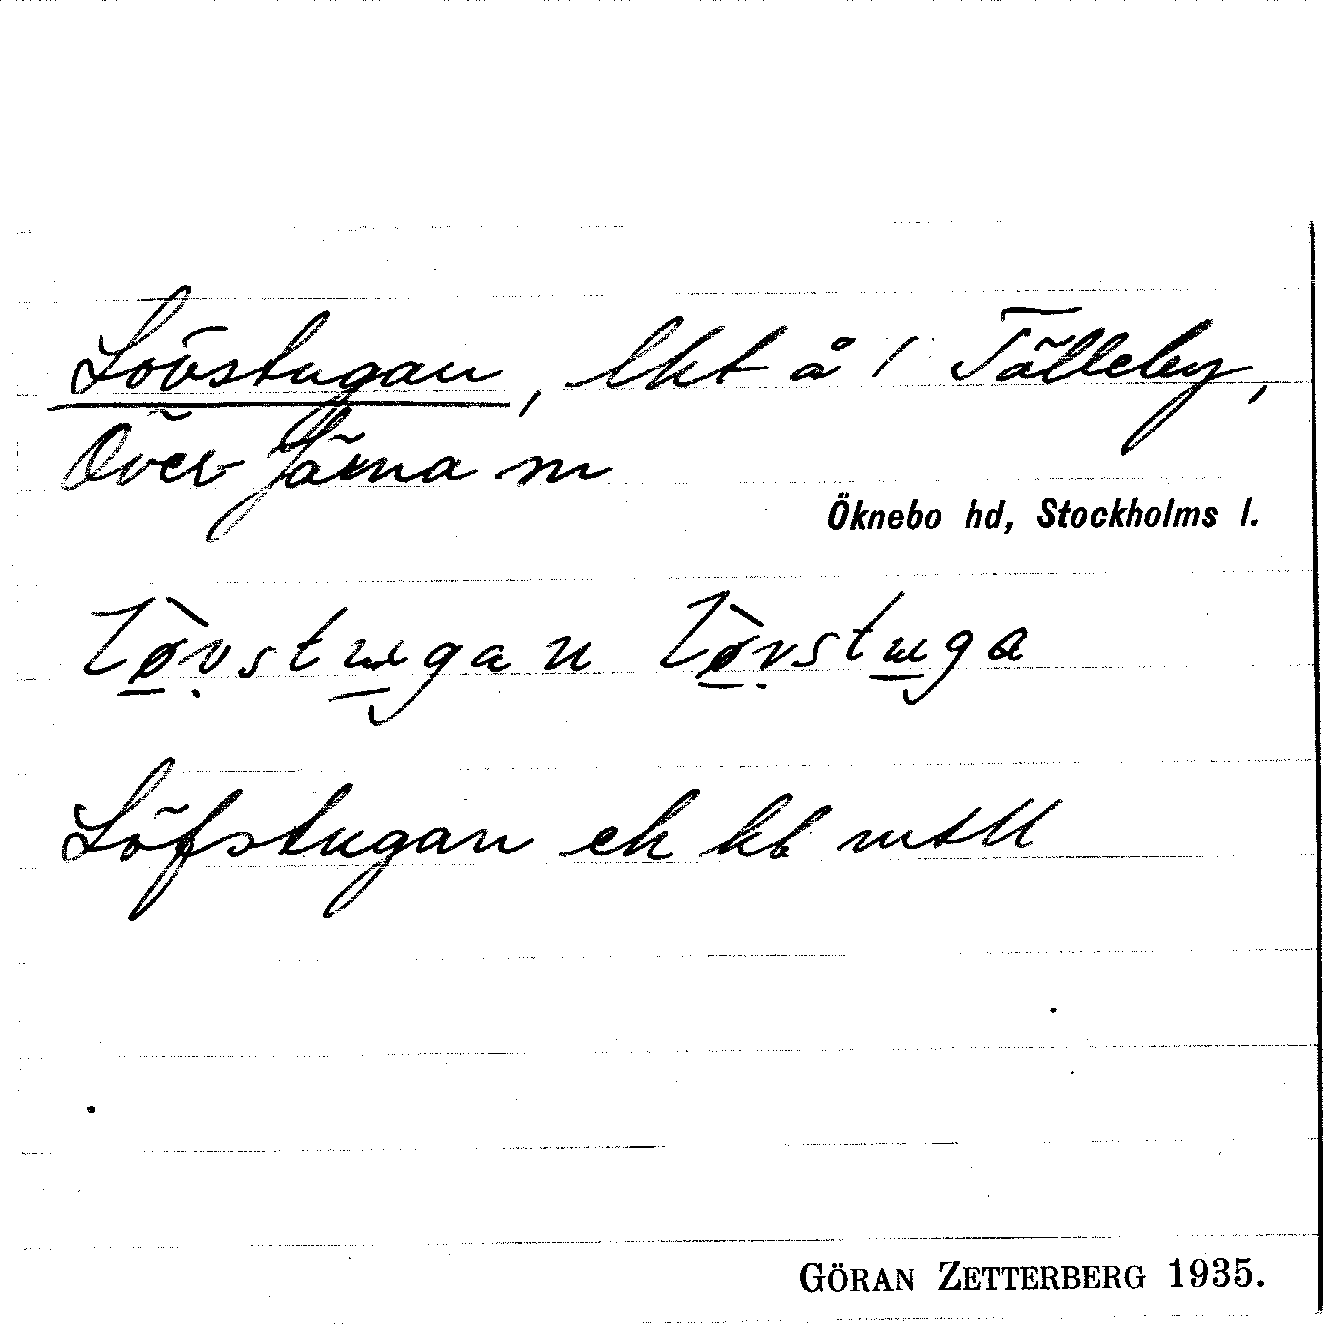 Lövstugan, lht å 1 Tälleby,
Över Järna sn
Öknebo hd, Stockholms l.
lø̀vstugan lø̀vstuga
Löfstugan ek kb
GÖRAN ZETTERBERG 1935.